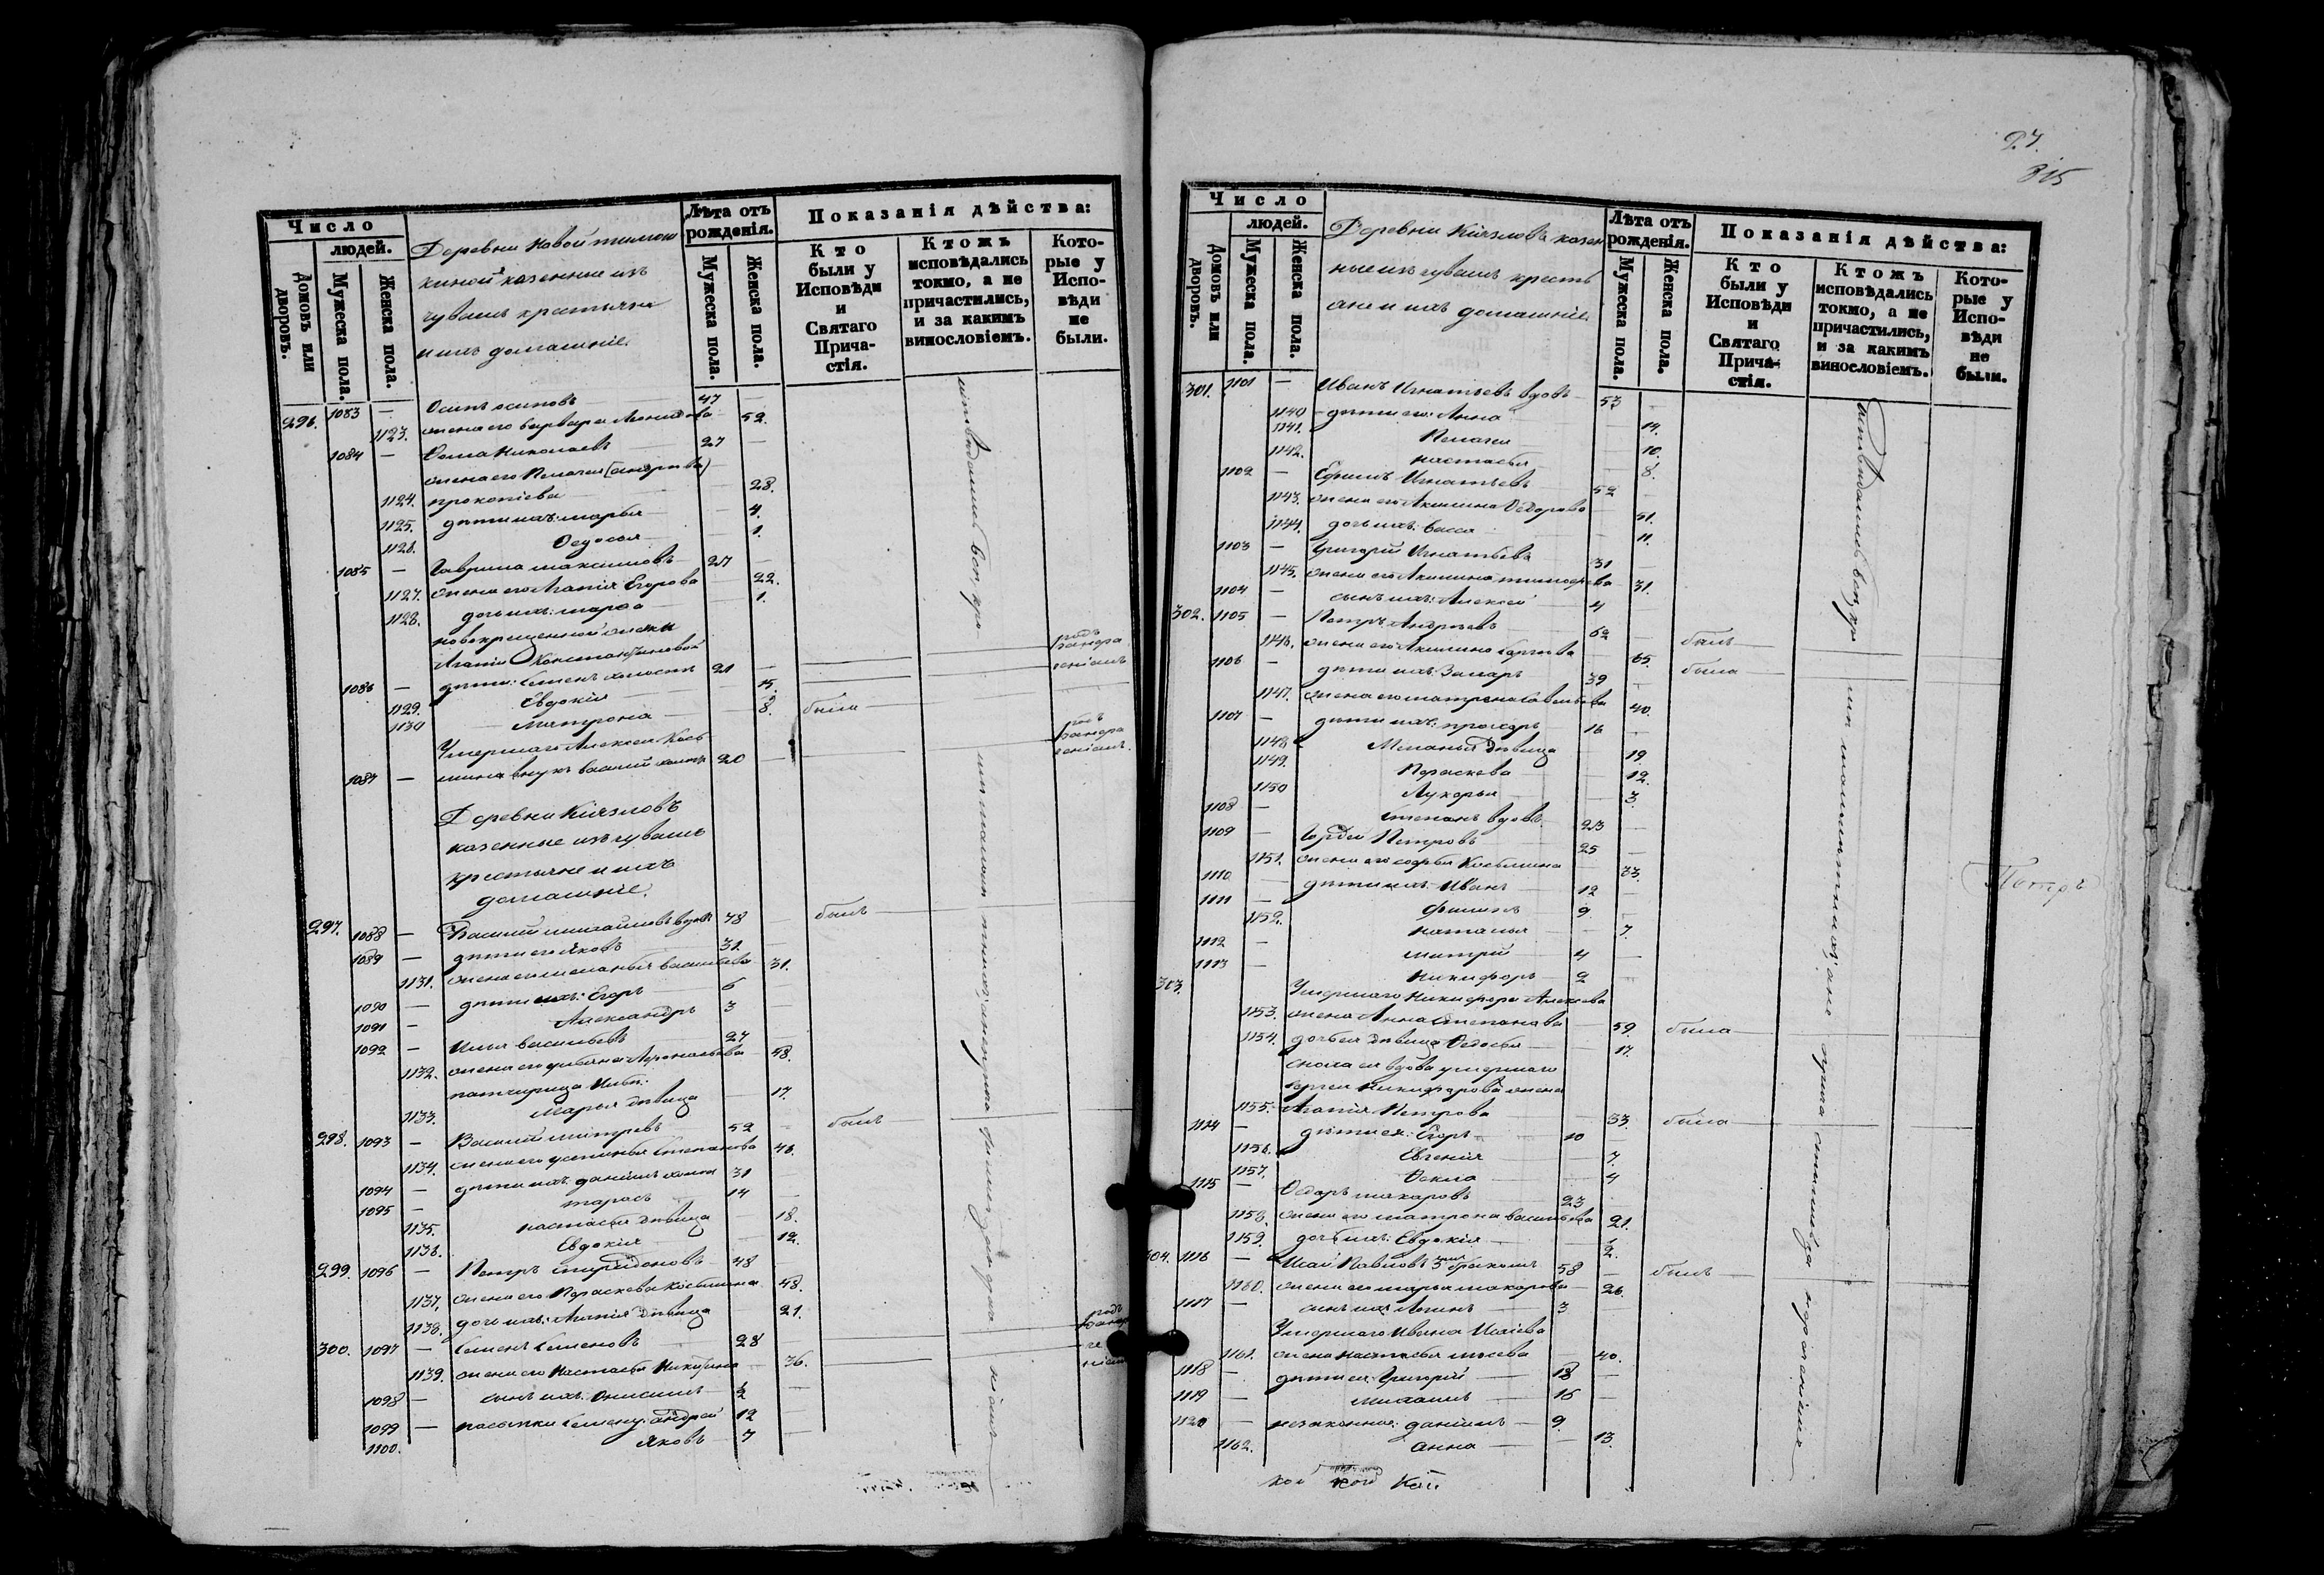 Число
людей.
Домовъ или дворовъ.
Мужеска пола.
Женска пола.
Деревни Новой тимош
киной казенные изъ
чувашъ крестьяне
и ихъ домашніе.
Лѣта отъ рожденія.
Мужеска пола.
Женска пола.
Показанія дѣйства:
Кто были у Исповѣди и Святаго Прича-стія.
Ктожъ исповѣдались токмо, а не причастились, и за какимъ винословіемъ.
Кото-рые у Испо-вѣди не были.
296. 1083 — Осипъ осиповъ 47 —
1123. жена его варвара 52.
1084 — Ѳома Николаевъ 27 —
жена его Пелагея
1124. прокопіева 28.
1125. дѣти ихъ: марья 4.
1126. Ѳедосья 1.
1085 — Гаврила максимовъ 27
1127. жена его Агапія Егорова 22.
1128. дочь ихъ: марфа 1.
новокрещенной женки
Агапіи Константиновой
1086 — дѣти: Семенъ холостъ 21 —
1129. Евдокія 15.
1130 Матрона 8. была
Умершаго Алексея Кось
1087 — мина внукъ василій холостъ 20 —
Деревни Кіязловъ
казенные изъ чувашъ
крестьяне и ихъ
домашніе.
297. 1088 — Василій михайловъ вдовъ 48 былъ
1089 — дѣти его Яковъ 31.
1131. жена его меланья васильева 31.
1090 — дѣти ихъ: Егоръ 6
1091 — Александръ 3
1092 — Илья васильевъ 27
1132. жена его ульяна 48.
1133. Марья дѣвица 17.
298. 1093 — Василій митревъ 52 — былъ
1134. жена его устинья Степанова 46.
1094 — дѣти ихъ: даніилъ холостъ 31
1095 — тарасъ 14 —
1135. настасья дѣвица 18.
1136. Евдокія 12.
299. 1096 — Петръ спиридоновъ 48
1137. жена его Параскева Косьмина 48.
1138. дочь ихъ: Агапія дѣвица 21.
300. 1097 — Семенъ Семеновъ 28
1139. жена его Настасья Никитина 36.
1098 — сынъ ихъ: Онисимъ ½ —
1099 — пасынки Семену: андрей 12 —
1100. Яковъ 7 —
27.
315
Число
людей.
Домовъ или дворовъ.
Мужеска пола.
Женска пола.
Деревни Кіязловъ казен
ные изъ чувашъ кресть
яне и ихъ домашніе.
Лѣта отъ рожденія.
Мужеска пола.
Женска пола.
Показанія дѣйства:
Кто были у Исповѣди и Святаго Прича-стія.
Ктожъ исповѣдались токмо, а не причастились, и за какимъ винословіемъ.
Кото-рые у Испо-вѣди не были.
301. 1101 — Иванъ Игнатьевъ вдовъ 53 —
1140 дѣти его: Анна 14.
1141. Пелагея 10.
1142. настасья 8.
1102 — Ефимъ Игнатьевъ 52 —
1143. жена его Акилина Ѳедорова 51.
1144. дочь ихъ: васса 11.
1103 — Григорій Игнатьевъ 31 —
1145. жена его Акилина тимофеева 31.
1104 — сынъ ихъ: Алексей 4
302. 1105 — Петръ Андреевъ 62 — былъ
1146. жена его Акилина Сергеева 65. была
1106 — дѣти ихъ: Захаръ 39 —
1147. жена его матрона савельева 40.
1107 — дѣти ихъ: прохоръ 16 —
1148 Меланья дѣвица 19.
1149. Параскева 12.
1150 Лукерья 3.
1108 — Степанъ вдовъ 23 —
1109 — Гордей Петровъ 25 —
1151. жена его софья Косьмина 33.
1110 дѣти ихъ: Иванъ 12 —
1111 — филипъ 9 —
1152. наталья 7.
1112 — митрій 4 —
1113 — Никифоръ 2 —
303. Умершаго Никифора Алексеева
1153. жена Анна степанова 59. была
1154. дочь ея дѣвица Ѳедосья 17.
сноха ея вдова умершаго
Сергея Никифорова жена
1155. Агапія Петрова 33. была
1114 — дѣти ея: Егоръ 10 —
1156. Евгенія 7.
1157. Ѳекла 4
1115 — Ѳедоръ макаровъ 23
1158. жена его матрона васильева 21.
1159. дочь ихъ: Евдокія ½.
304. 1116 — Исай Павловъ 3мъ бракомъ 58 — былъ
1160. жена его марья макарова 26.
1117 — сынъ ихъ Логинъ 3 —
Умершаго Ивана Исаіева
1161. жена настасья 40.
1118 — дѣти ея: Григорій 18 —
1119 — михаилъ 15 —
1120 — незаконные: даніилъ 9.
1162. анна 13.
Петръ